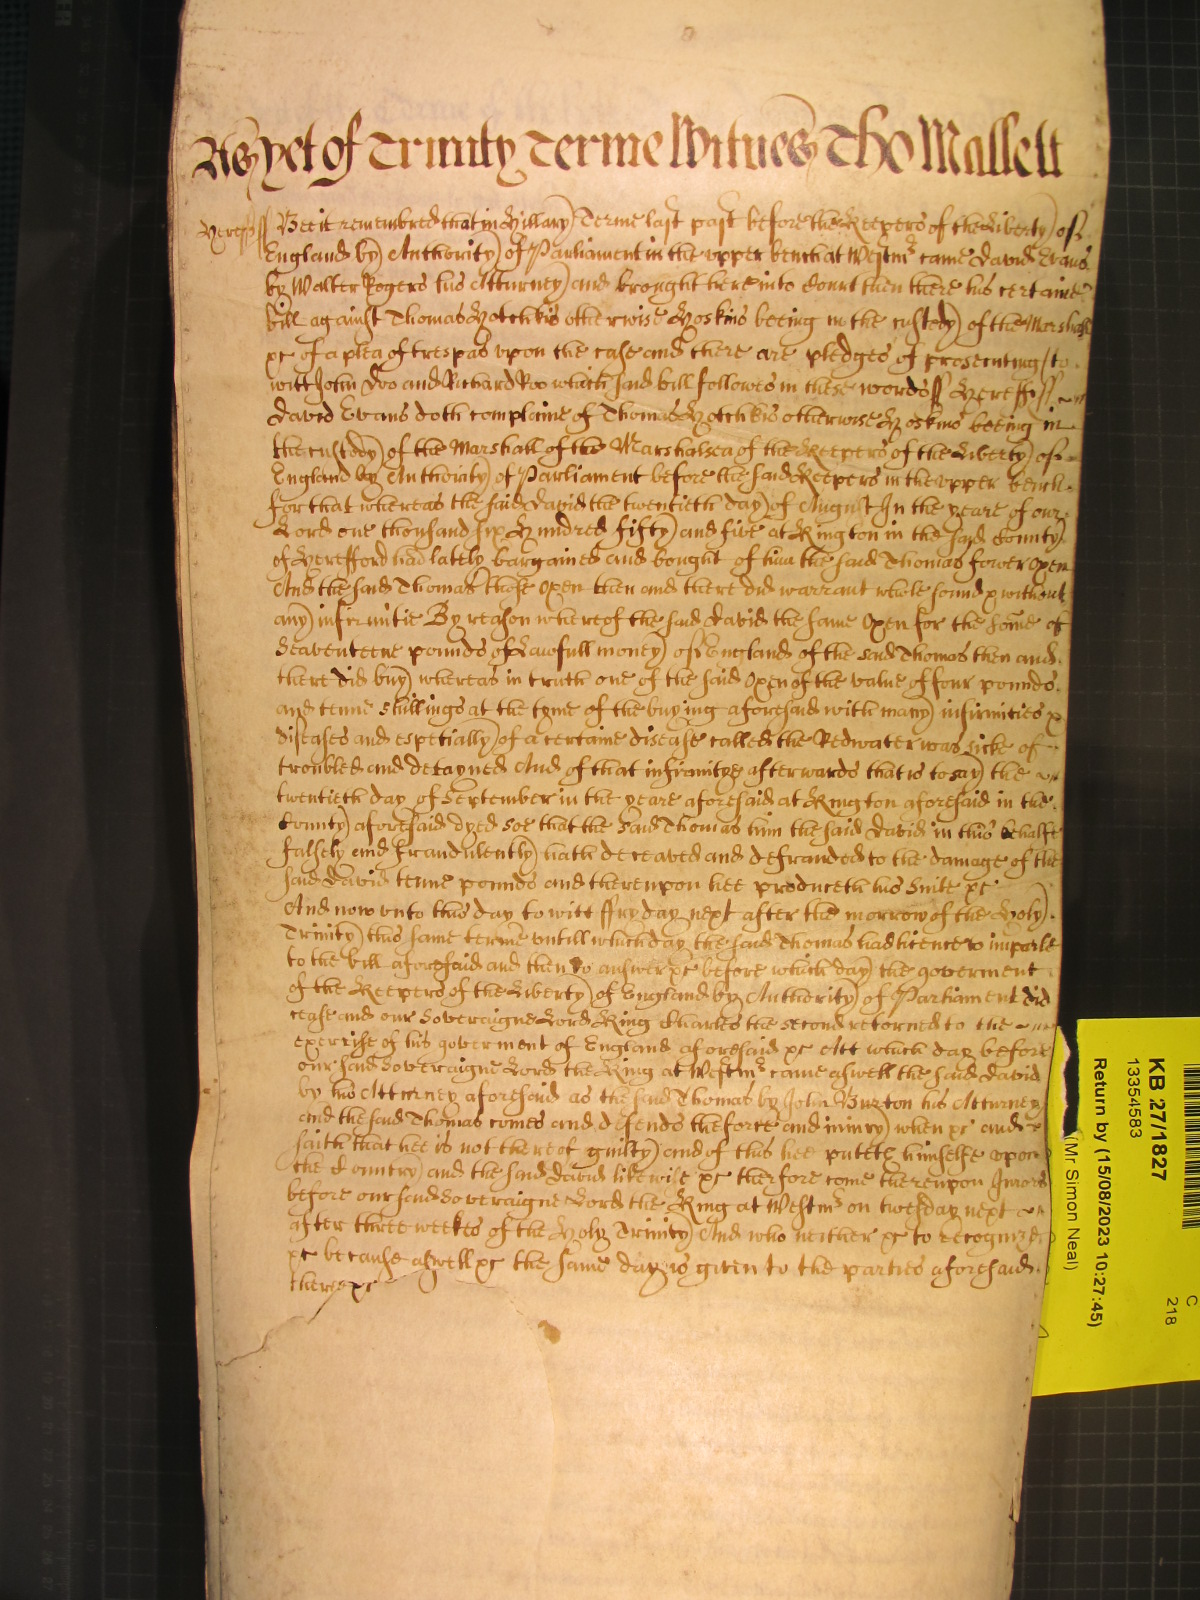 As yet of Trinity Terme Witnes Tho Mallett
Hereff ss Bee it remembred that in Hillary Terme last past before the Keepers of the Liberty of
England by Authority of Parliament in the upper bench at Westmr came David Evans
by Walter Rogers his Atturney and brought here into Court then there his certaine
bill against Thomas Hotchkis otherwise Hoskins beeing in the custody of the Marshall
xc of a plea of trespas upon the case and there are pledges of prosecuting to
witt John Doo and Richard Roo which said bill followes in these words ss Hereff ss
David Evans doth complaine of Thomas Hotchkis otherwise Hoskins beeing in
the custody of the Marshall of the Marshalsea of the Keepers of the Liberty of
England by Authority of Parliament before the said Keepers in the upper bench
for that whereas the said David the twentieth day of August In the yeare of our
Lord one thousand six Hundred fifty and five at Kington in the said County
of Herefford had lately bargained and bought of him the said Thomas fower Oxen
And the said Thomas those Oxen then and there did warrant whole sound & without
any infirmitie By reason whereof the said David the same Oxen for the some of
Seaventeene pounds of Lawfull money of England of the said Thomas then and
there did buy whereas in truth one of the said Oxen of the value of four pounds
and tenne shillings at the tyme of the buying aforesaid with many infirmities &
diseases and espetially of a certaine disease called the Redwater was sicke of
troubled and detayned And of that infirmitye afterwards that is to say the
twentieth day of September in the yeare aforesaid at Kington aforesaid in the
County aforesaid dyed Soe that the said Thomas him the said David in this behalfe
falsely and fraudulently hath deceaved and defrauded to the damage of the
said David tenne pounds and thereupon hee produceth his Suite xc
And now unto this day to witt ffryday next after the morrow of the Holy
Trinity this same terme untill which day the said Thomas had licence to imparle
to the bill aforesaid and then to answer xc before which day the goverment
of the Keepers of the Liberty of England by Authority of Parliament did
cease and our Soveraigne Lord King Charles the second returned to the
exercise of his goverment of England aforesaid xc Att which day before
our said Soveraigne Lord the King at Westmr came aswell the said David
by his Atturney aforesaid as the said Thomas by John Burton his Atturney
and the said Thomas comes and defends the force and iniury when xc and
saith that hee is not thereof guilty and of this hee puteth himselfe upon
the Country and the said David likewise xc therfore come thereupon Jurors
before our said Soveraigne Lord the King at Westmr on tuesday next
after three weekes of the Holy Trinity And who neither xc to recognize
xc because aswell xc the same day is given to the parties aforesaid
there xc
KB 27/1827
13354583
Return by (15/08/2023 10:27:45)
(Mr Simon Neal)
C
218